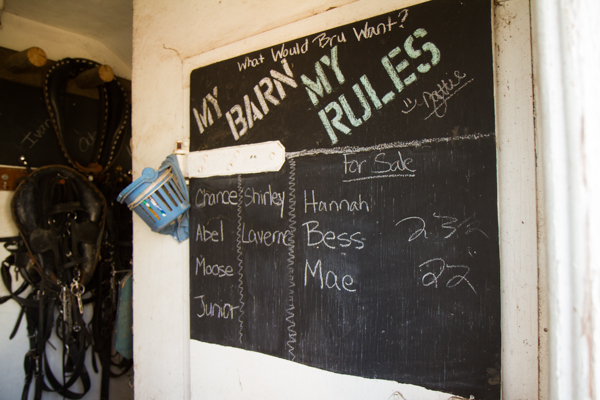 What Would Bru Want?
MY BARN MY RULES
:) Dottie
For Sale
Chance Shirley Hannah
Abel Lavern Bess 2 3/2
Moose Mae 22
Junior